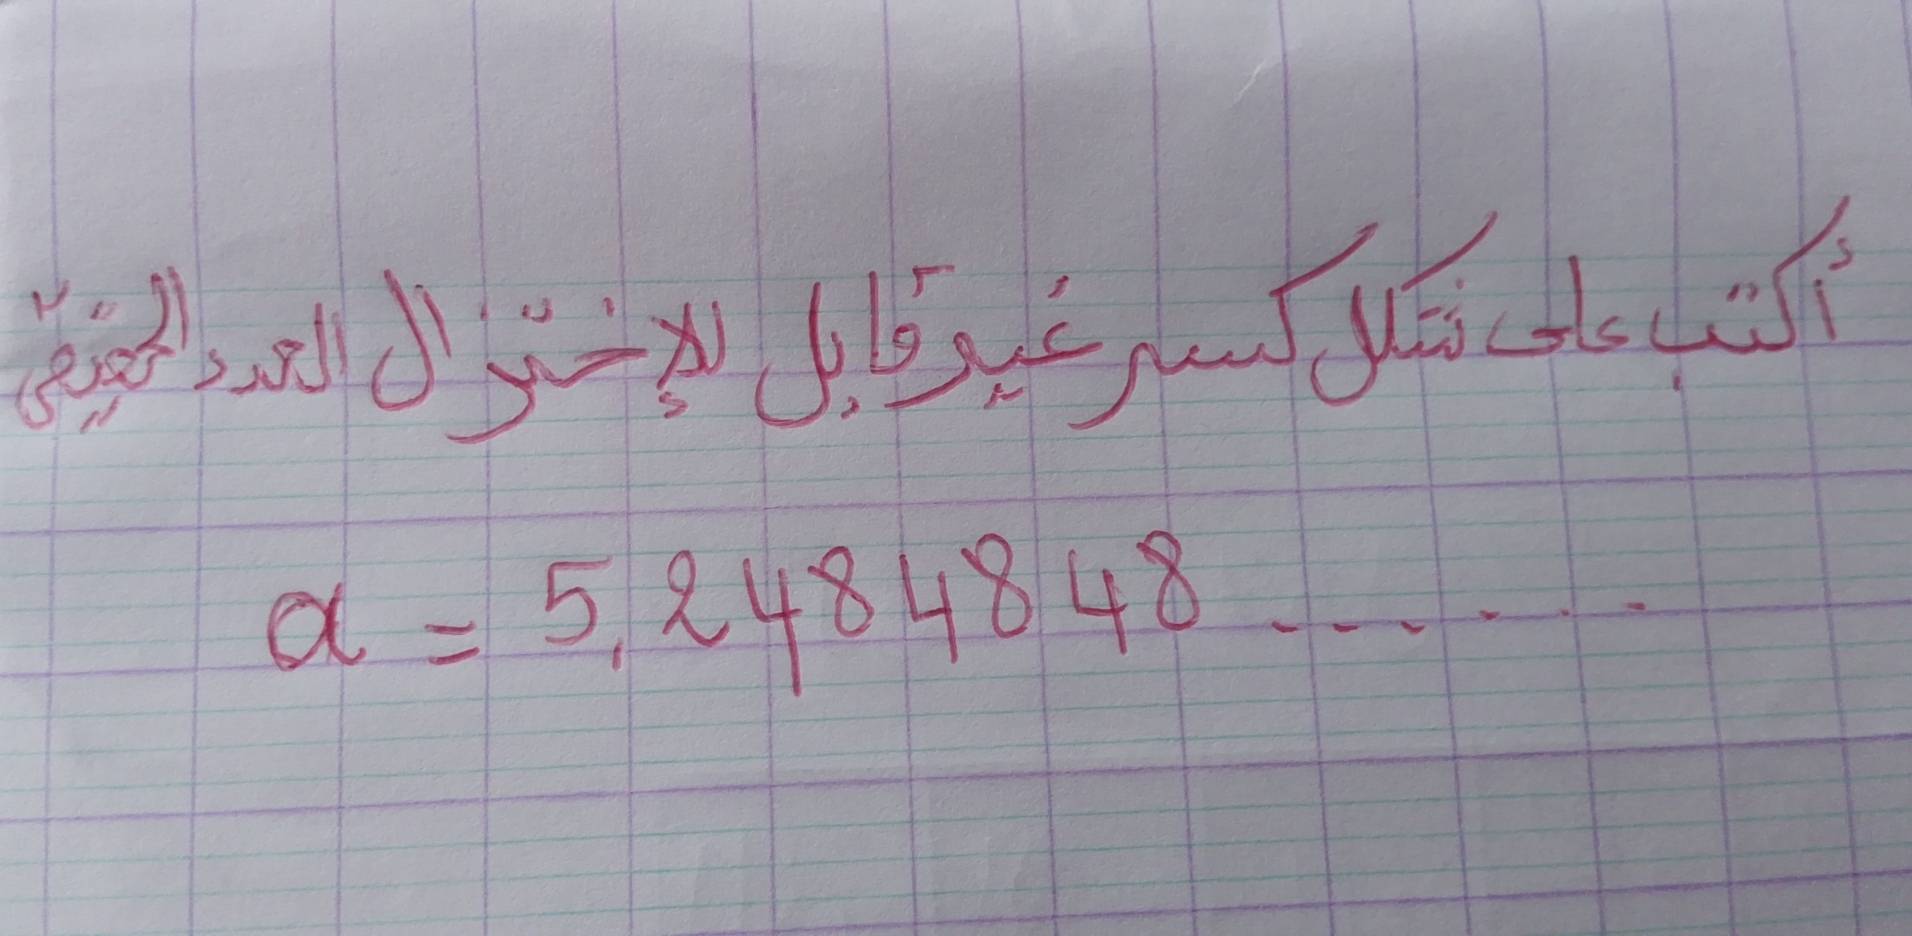 أكتب على شكل كسر غير قابل للإختزال العدد الحقيقي
a = 5,2484848 ......